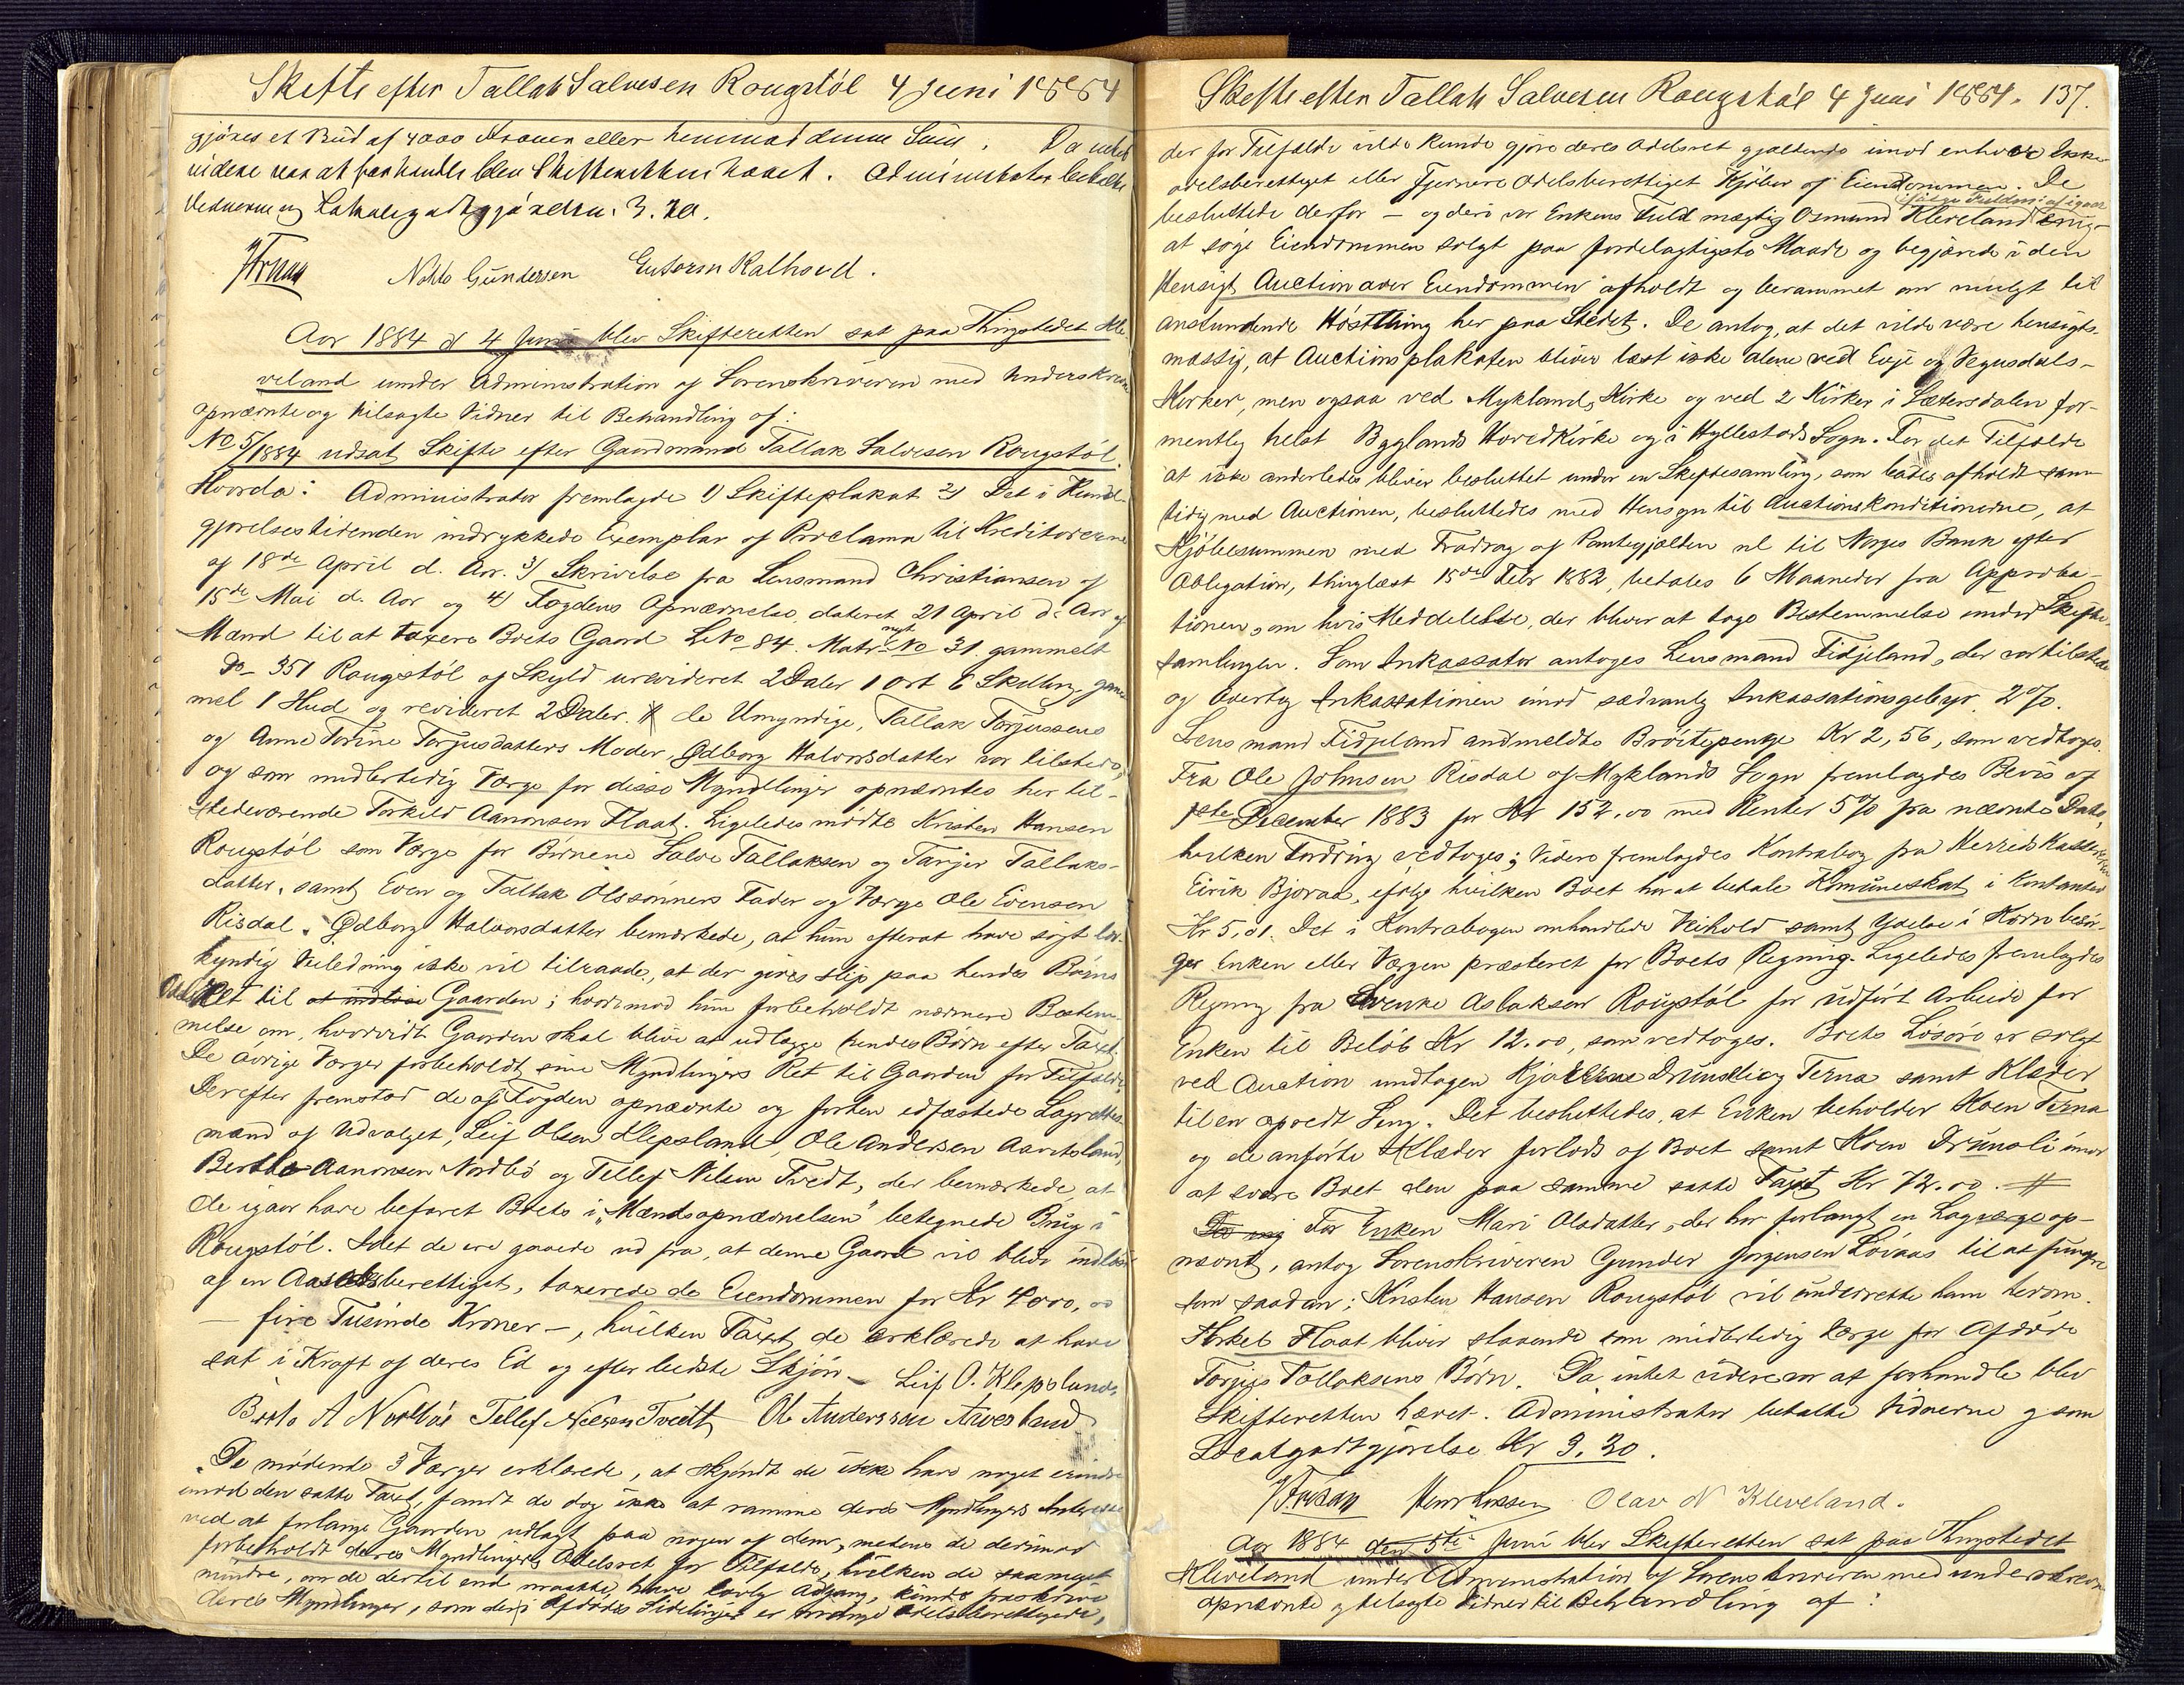 Skifte efter Tallak Salvesen Rougstøl 4 Juni 1884
gjøres et Bud af 4000 Kroner eller henimod denne Sum. Da intet
videre var at forhandle blev Skifteretten hævet. Administrator betalte
Vidnerne og Lokalegodtgjørelsen. 3.20.
Nohto Gundersen Guttorm Kalhovd.
Aar 1884 d 4 Juni blev Skifteretten sat paa Thingstedet Kle-
veland under Administration af Sorenskriveren med Underskrevne
opnævnte og tilsagte Vidner til Behandling af:
No 5/1884 udsat Skifte efter Gaardmand Tallak Salvesen Rougstøl.
Hvorda: Administrator fremlagde 1) Skifteplakat 2) Det i Kund-
gjørelsestidenden indrykkede Exemplar af Proclama til Kreditorerne
af 18de April d. Aar. 3) Skrivelse fra Lensmand Christiansen af
15de Mai d. Aar og 4) Fogdens Opnævnelse, dateret 21 April d. Aar af
Mænd til at taxere Boets Gaard LNo 84. Matr. nyt No 31. gammelt
Do 351 Rougstøl af Skyld urevideret 2 Daler 1 Ort 6 Skilling, gam-
mel 1 Hud og revideret 2 Daler. # de Umyndige, Tallak Torjussens
og Anne Torine Torjusdatters Moder, Ødborg Halvorsdatter var tilstede,
og som midlertidig Værge for disse Myndlinger opnævntes her til-
stedeværende Torkild Aanonsen Flaat. Ligeledes mødte Kristen Hansen
Rougstøl som Værge for Børnene Salve Tallaksen og Tarjer Tallaks-
datter, samt Even og Tallak Olssønners Fader og Værge Ole Evensen
Risdal. Ødborg Halvorsdatter bemærkede, at hun efterat have søgt lov-
kyndig Veiledning ikke vil tilraade, at der gives slip paa hendes Børns
Odelsret til at indløse Gaarden; hvorimod hun forbeholdt nærmere Bestem-
melse om, hvorvidt Gaarden skal blive at udlægge hendes Børn efter Taxt.
De øvrige Værger forbeholdt sine Myndlingers Ret til Gaarden for Tilfælde.
Derefter fremstod de af Fogden opnævnte og forhen edfæstede Lagrettes-
mænd af Udvalget, Leif Olsen Klepsland, Ole Andersen Aavitsland,
Berthe Aanonsen Nordbø og Tellef Nilsen Tvedt, der bemærkede, at
de igaar have befaret Boets i "Mændsopnævnelsen" betegnede Brug i
Rougstøl. Idet de ere gaaede ud fra, at denne Gaard vil blive indløst
af en Aasædesberettiget, taxerede de Eiendommen for Kr 4000,00
– fire Tusinde Kroner –, hvilken Taxt de erklærede at have
sat i Kraft af deres Ed og efter bedste Skjøn – Leif O. Klepsland,
A Nordbø Tellef Nielsen Tvedt Ole Anderssøn
De mødende 3 Værger erklærede, at skjøndt de ikke have noget erindre
imod den satte Taxt, fandt de dog ikke at ramme deres Myndlingers Interesse
ved at forlange Gaarden udlagt paa nogen af dem, medens de derimod
forbeholdt deres Myndlingers Odelsret for Tilfælde, hvilken de saameget
mindre, om de dertil end maatte have lovlig Adgang, kunde fraskrive
deres Myndlinger, som der i Afdødes Sidelinjer er mange Odelsberettigede,
Skifte efter Tallak Salvesen Rougstøl 4 Juni 1884. 137.
der for Tilfælde vilde kunde gjøre deres Odelsret gjældende imod enhver ikke
odelsberettiget eller fjernere Odelsberettiget Kjøber af Eiendommen. De
ifølge Fuldm: af igaar
besluttede derfor – og deri var Enkens Fuldmægtig Osmund Kleveland enig –
at søge Eiendommen solgt paa fordelagtigste Maade og begjærede i den
Hensigt Auction over Eiendommen afholdt og berammet om muligt til
anstundende Høstthing her paa Stedet. De antog, at det vilde være hensigts-
mæssig, at Auctionsplakaten bliver læst ikke alene ved Evje og Vegusdals-
Kirker, men ogsaa ved Myklands Kirke og ved 2 Kirker i Sætersdalen for-
mentlig helst Byglands Hovedkirke og i Hyllestads Sogn. For det Tilfælde
at ikke anderledes bliver besluttet under en Skiftesamling, som bades afholdt sam-
tidig med Auctionen, besluttedes med Hensyn til Auctionskonditionerne, at
Kjøbesummen med Fradrag af Pantegjælden nl til Norges Bank efter
Obligation, thinglæst 15de Febr 1882, betales 6 Maaneder fra Approba-
tionen, om hvis Meddelelse, der bliver at tage Bestemmelse under Skifte-
samlingen. Som Inkassator antoges Lensmand Fidjeland, der var tilstede
og overtog Inkassationen imod sædvanlig Inkassationsgebyr. 2%.
Lensmand Fidjeland anmeldte Brøitepenge Kr 2,56, som vedtoges.
Fra Ole Johnsen Risdal af Myklands Sogn fremlagdes Bevis af
1ste December 1883 for Kr 152.00 med Renter 5% fra nævnte Dato,
hvilken Fordring vedtoges; Videre fremlagdes Kontrabog fra Herredskasserer
Eirik Bjoraa, ifølge hvilken Boet har at betale Komuneskat i Kontanter
Kr 5,01. Det i Kontrabogen omhandlede Veihold samt Ydelse i Korn besør-
ger Enken eller Værgen præsteret for Boets Regning. Ligeledes fremlagdes
Regning fra Svenke Aslaksen Rougstøl for udført Arbeide for
Enken til Beløb Kr 12.00, som vedtoges. Boets Løsøre er solgt
ved Auction undtagen Kjørerne Drunsli og Terna samt Klæder
til en opredt Seng. Det besluttedes, at Enken beholder Koen Terna
og de anførte Klæder forlods af Boet samt Koen Drunsli imod
at svare Boet den paa samme satte Taxt Kr 72.00. #
For Enken Mari Olsdatter, der har forlangt en Lagværge op-
nævnt, antog Sorenskriveren Gunder Jørgensen Løvaas til at fungere
som saadan; Kristen Hansen Rougstøl vil underrette ham herom.
Torkel Flaat bliver staaende som midlertidig Værge for Afdøde
Torjus Tallaksens Børn. Da intet videre var at forhandle blev
Skifteretten hævet. Administrator betalte Vidnerne og som
Localgodtgjørelse Kr 3.20.
Olav N Kleveland.
Aar 1884 den 5te Juni blev Skifteretten sat paa Thingstedet
Kleveland under Administration af Sorenskriveren med underskrevne
opnævnte og tilsagte Vidner til Behandling af: